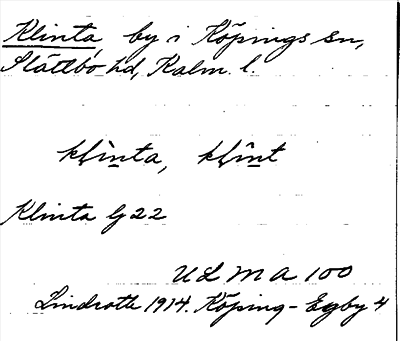 Klinta, by i Köpings sn,
Slättbo hd, Kalm. l.
kḷìnta, kḷînt
Klinta G 22
ULMA 100
Lindroth 1914. Köping - Egby 4